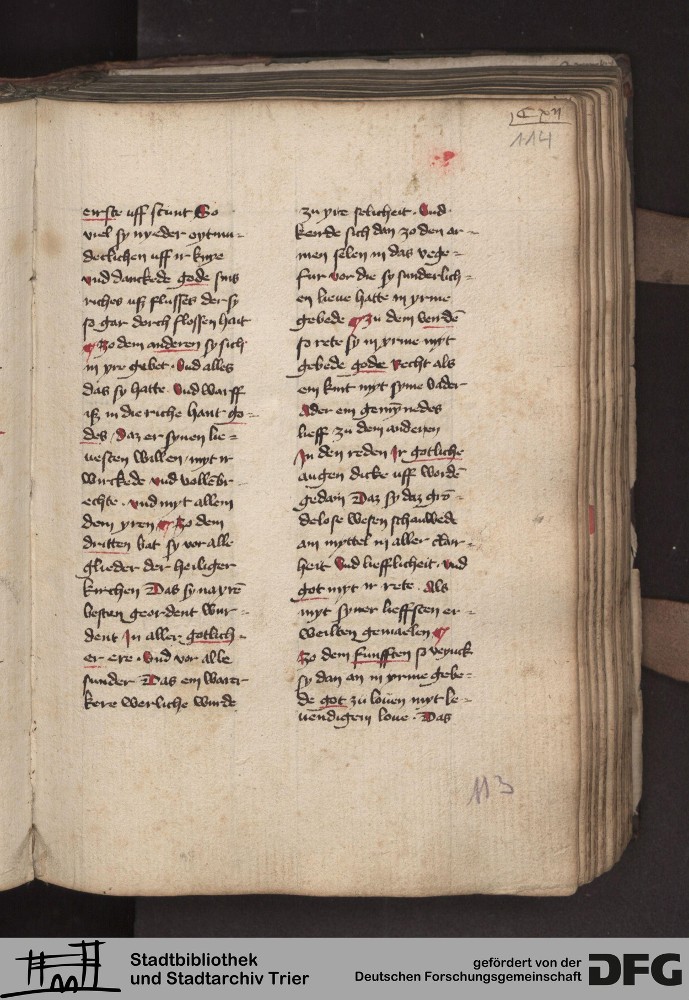 C xii
114
eirste uff stunt So
viel sy nyeder oytmu-
declichen uff ir knye
und danckede gode sins
riches uß flusses der sy
so gar dorch flossen hait
zo dem anderen sy sich
in yre gebet. Und alles
das sy hatte. Und warff
iß in die riche hant go-
des, Daz er synen lie-
vesten willen, myt ir
wirckede und vollenbr-
echte. und myt allem
dem yren Zo dem
dritten bat sy vor alle
glieder der heiliger
kirchen Das sy na yrē
besten geordent wur-
dent In aller gotlich-
er ere. Und vor alle
sunder Das ein warer
kere werliche wurde
zu yre selicheit. Und
kerde sich dan zo den ar-
men selen in das vege-
fur vor die sy sunderlich-
en lieve hatte in yrme
gebede Zu dem verdē
so rete sy in yrme myt
gebede gode recht als
ein kint myt syme vader
Ader ein gemynedes
lieff zu dem anderen
In den reden Ir gotliche
augen dicke uff wordē
gedain Daz sy daz gro-
delose wesen schauwede
am myttel in aller clar-
heit Und liefflicheit. Und
got myt ir rete. Als
myt syner lieffsten er-
welten gemaelen
zo dem funfften so veynck
sy dan an in yrme gebe-
de got zu loven myt le-
vendigem love. Das
113
Stadtbibliothek
und Stadtarchiv Trier
gefördert von der
Deutschen Forschungsgemeinschaft
DFG